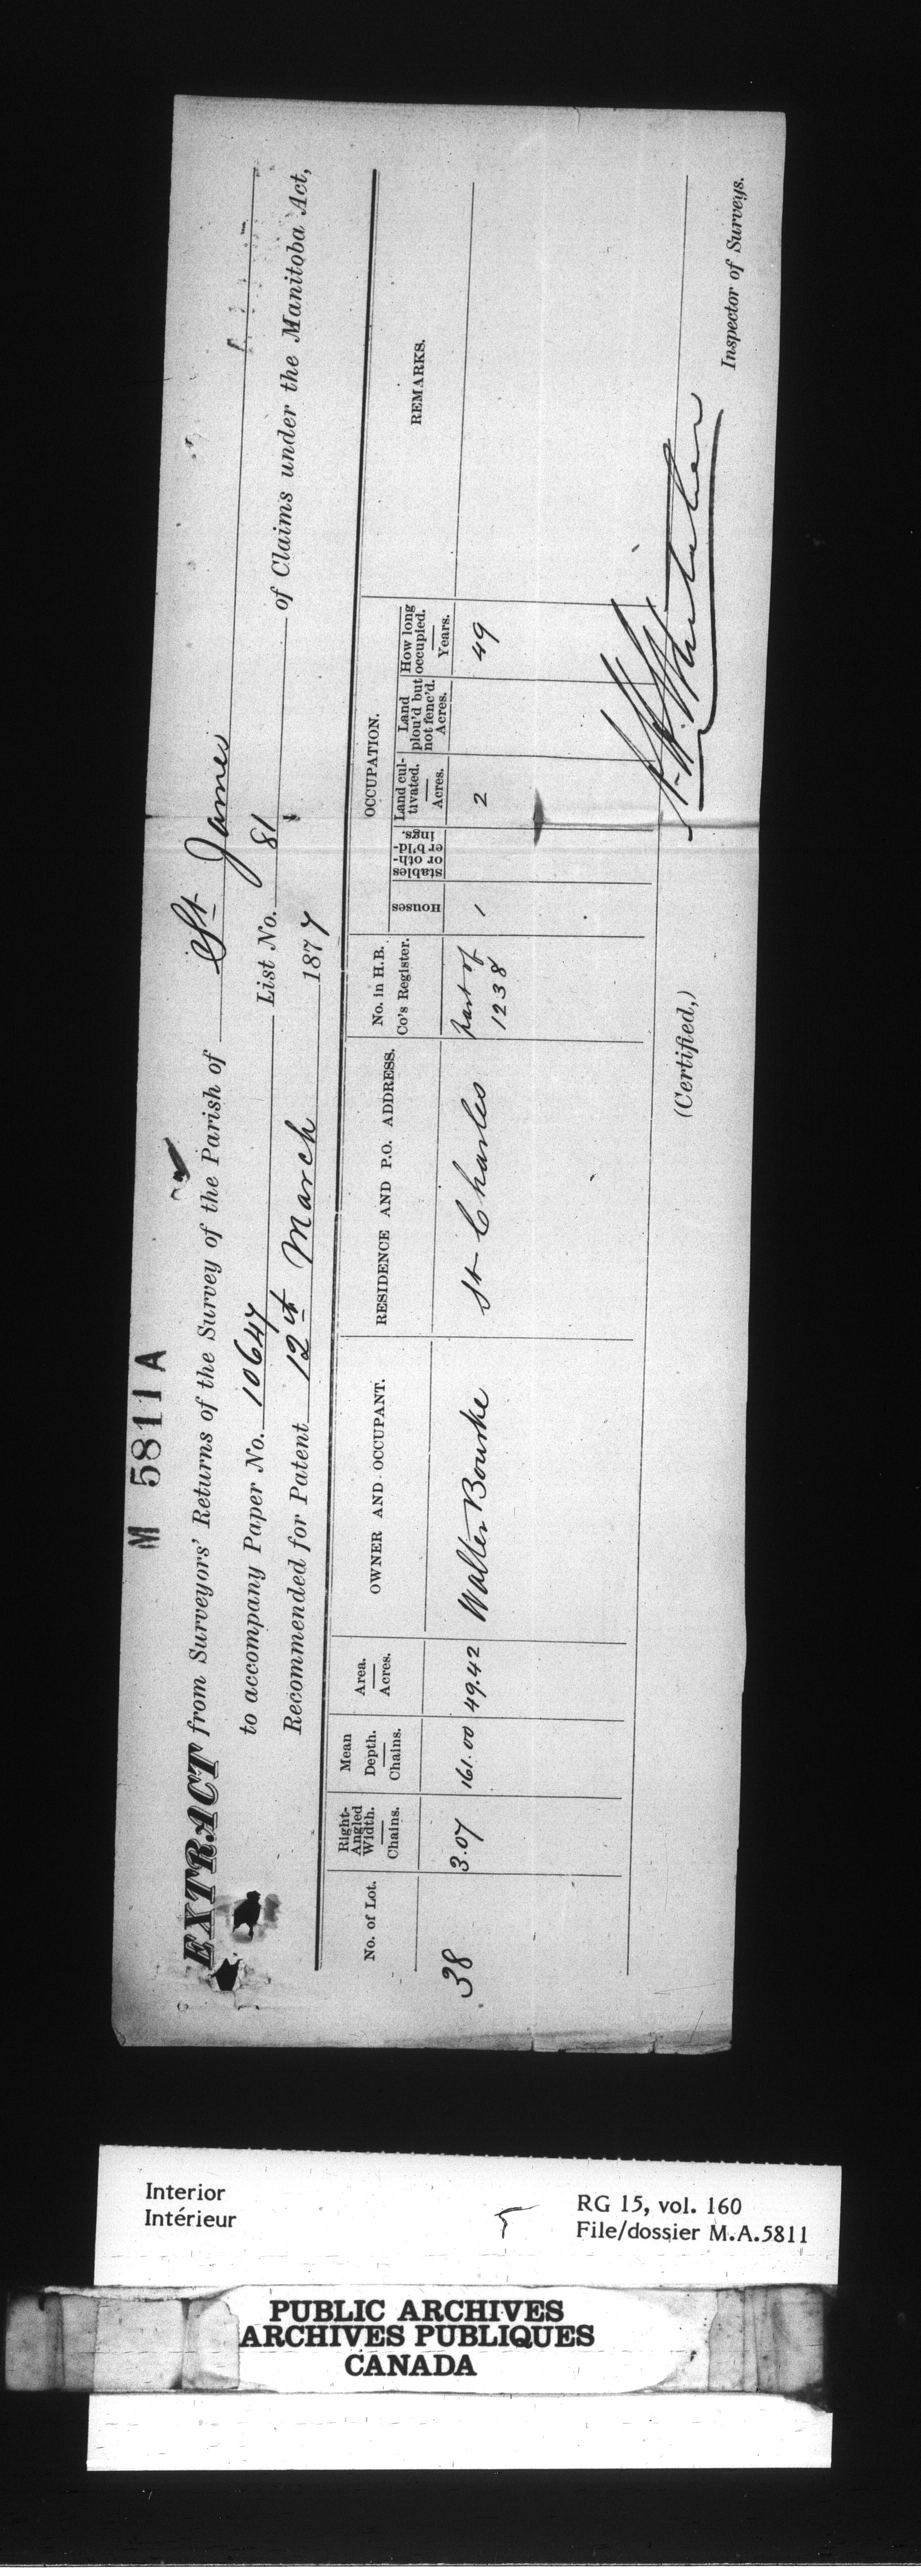 M 5811 A
EXTRACT from Surveyors' Returns of the Survey of the Parish of St James
to accompany Paper No. 10647 List No. 81 of Claims under the Manitoba Act,
Recommended for Patent 12th March 1877
No. of Lot.
Right-Angled Width. Chains.
Mean Depth. Chains.
Area. Acres.
OWNER AND OCCUPANT.
RESIDENCE AND P.O. ADDRESS.
No. in H.B. Co's Register.
OCCUPATION.
Houses
stables or oth-er b'ld-ings.
Land cul-tivated. Acres.
Land plou'd but not fenc'd. Acres.
How long occupied. Years.
REMARKS.
38 3.07 161.00 49.42 Walter Bourke St Charles part of 1238 1 2 49
(Certified,)
Inspector of Surveys.
Interior
Intérieur
5
RG 15, vol. 160
File/dossier M.A.5811
PUBLIC ARCHIVES
ARCHIVES PUBLIQUES
CANADA